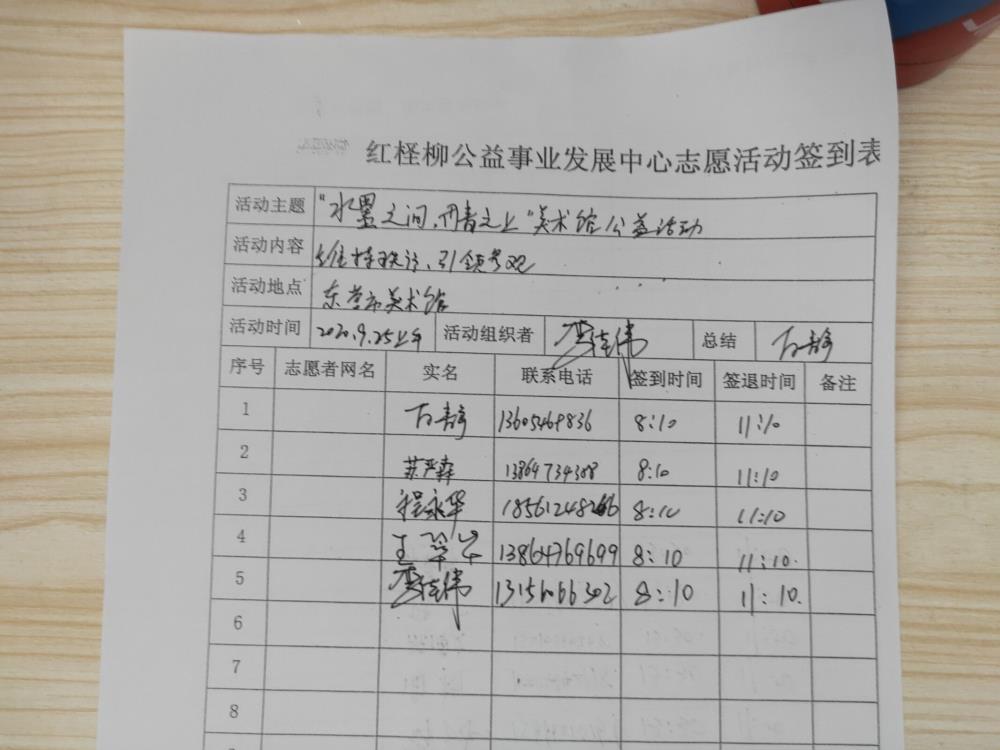 红柽柳公益事业发展中心志愿活动签到表
活动主题 "水墨之间、丹青之上"美术馆公益活动
活动内容 维持秩序、引领参观
活动地点 东营市美术馆
活动时间 2020.9.25上午 活动组织者 总结
序号 志愿者网名 实名 联系电话 签到时间 签退时间 备注
1 13605469836 8:10 11:10
2 13864734308 8:10 11:10
3 程永华 8:10 11:10
4 王翠华 13864769699 8:10 11:10.
5 13156066302 8:10 11:10.
6
7
8